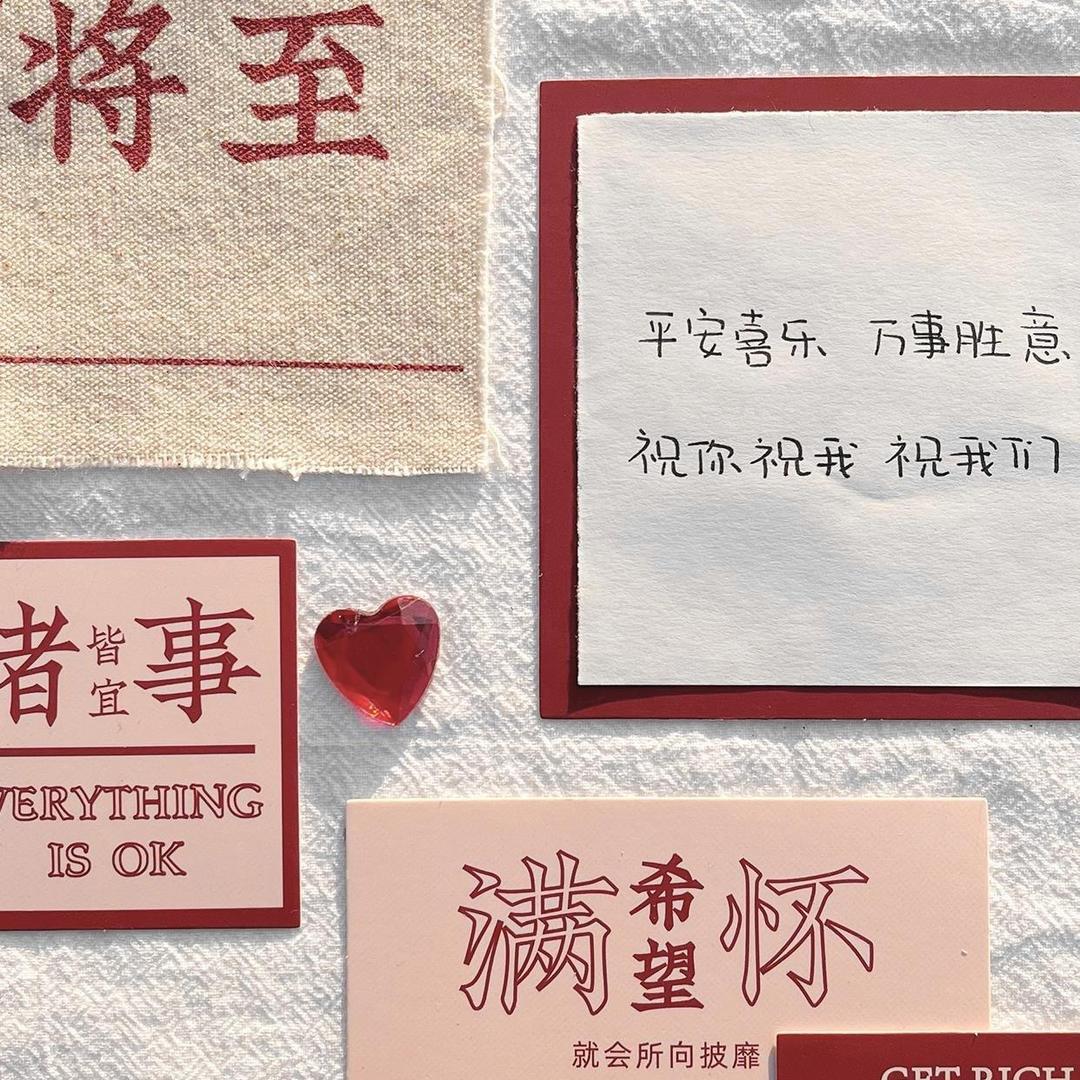 将至
平安喜乐 万事胜意
祝你祝我 祝我们
诸事
皆宜
VERYTHING
IS OK
满怀
希望
就会所向披靡
GET RICH